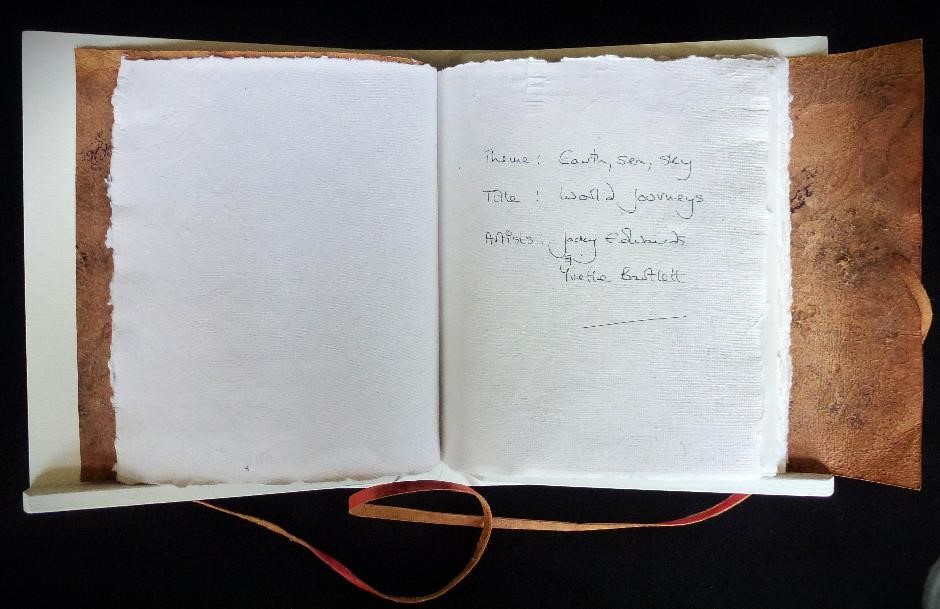 Theme: Earth, sea, sky
Title: World Journeys
Artists: Jacky Edwards
&
Yvette Bartlett